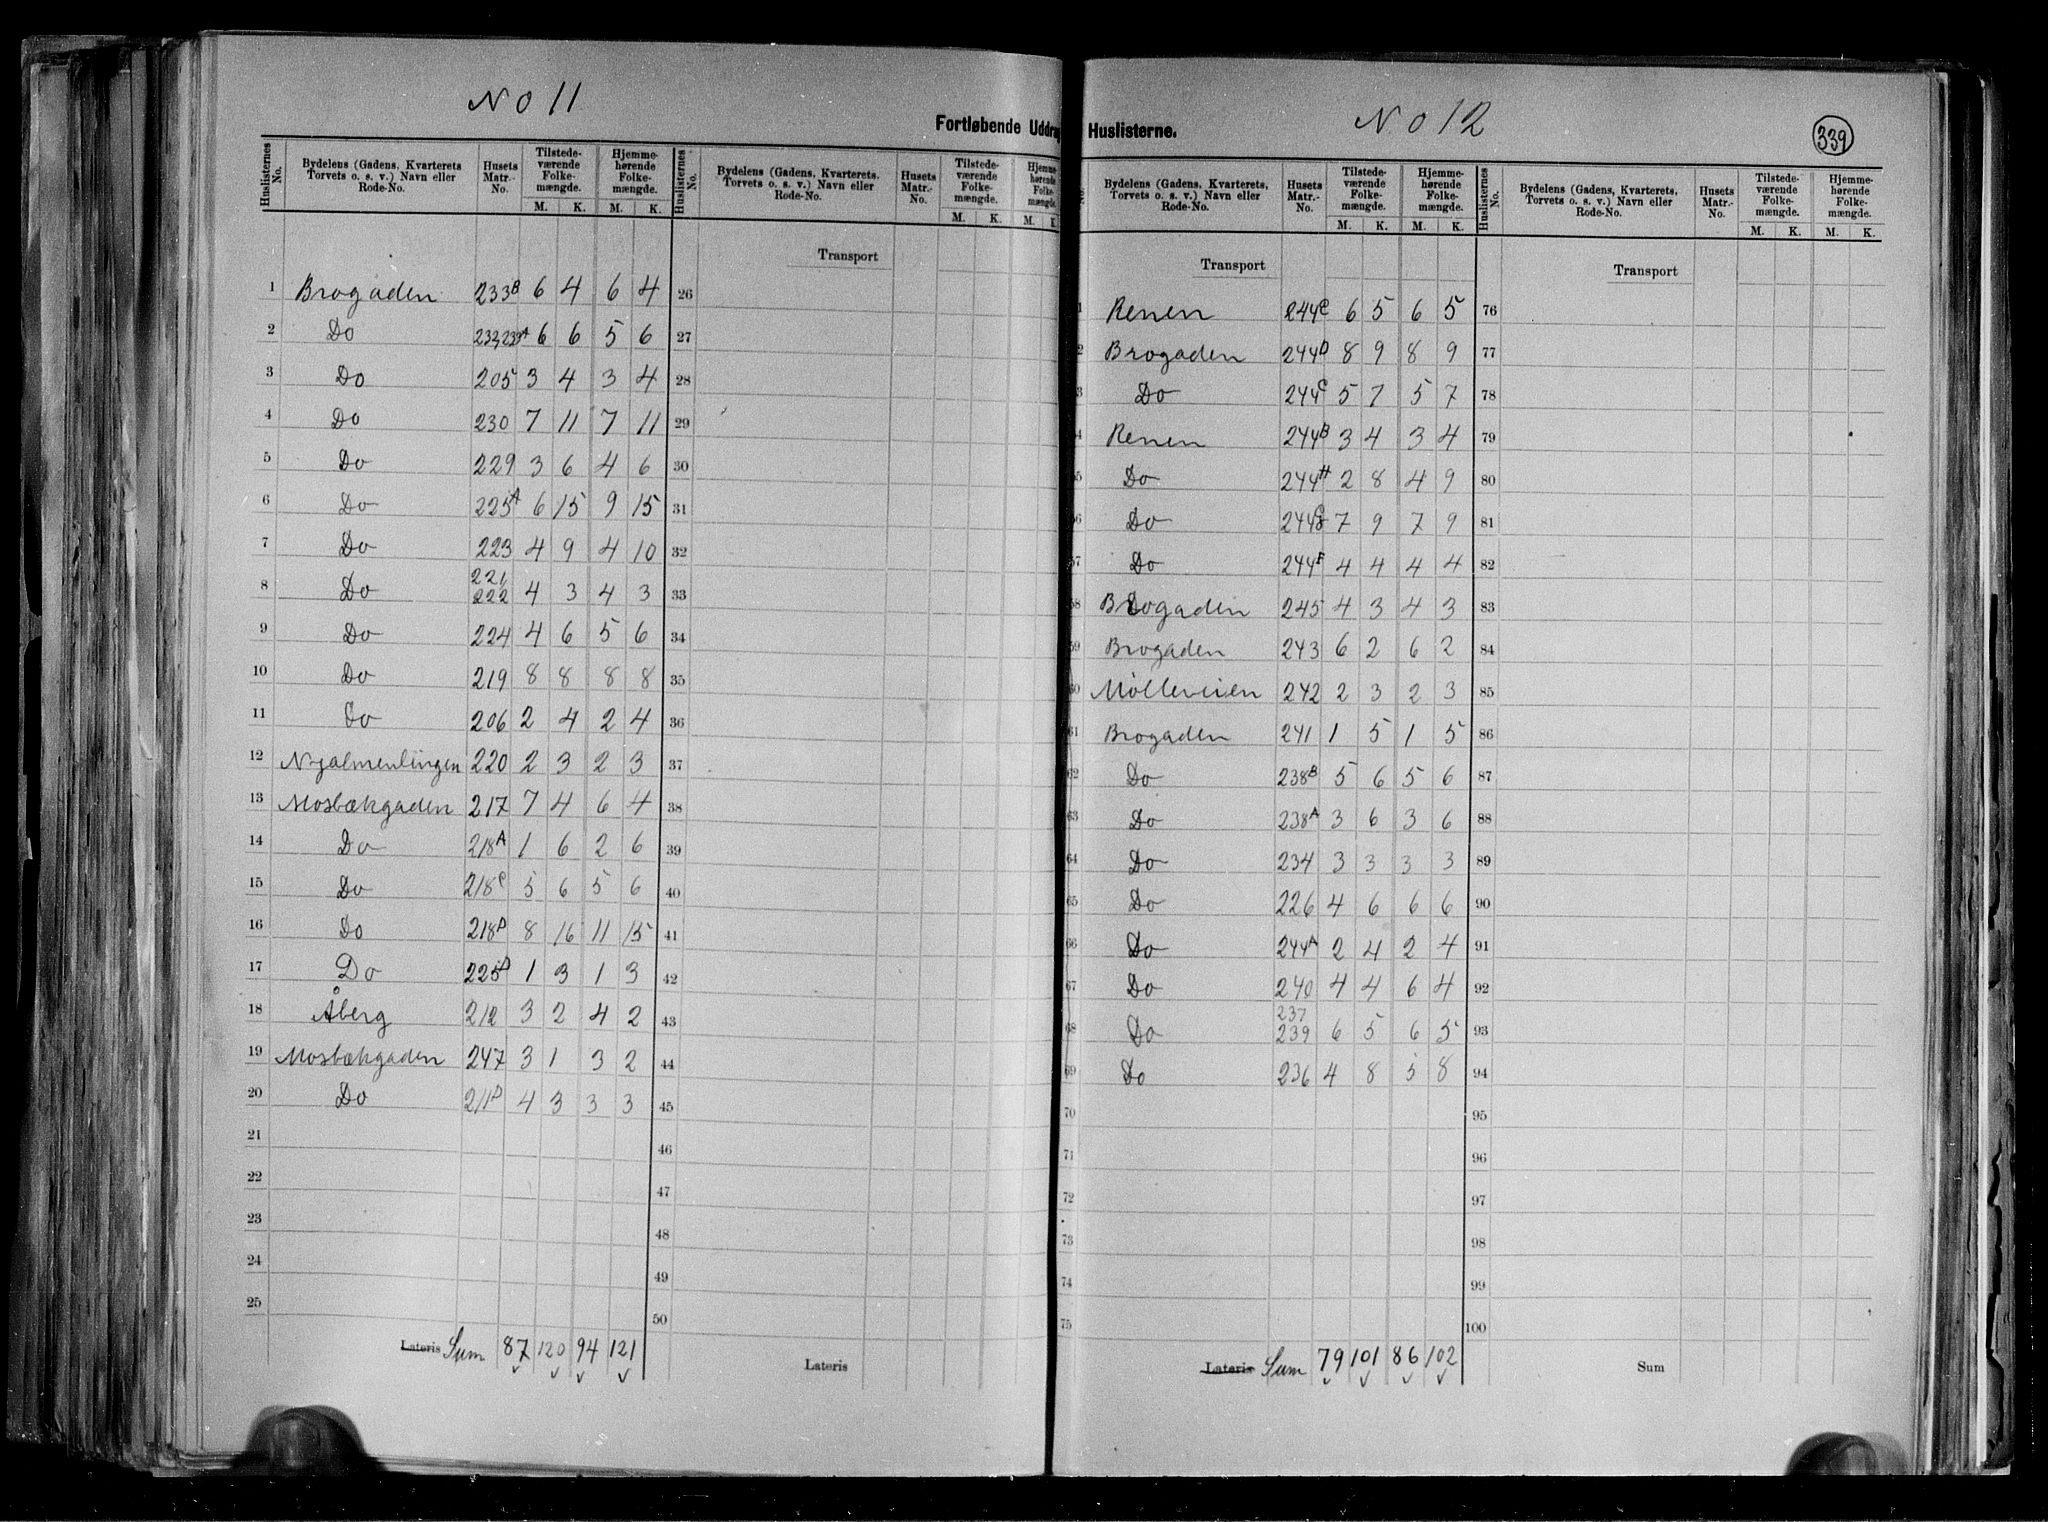 No 11
Fortløbende Uddrag
Huslisternes No. | Bydelens (Gadens, Kvarterets Torvets o. s. v.) Navn eller Rode-No. | Husets Matr.-No. | Tilstedeværende Folkemængde. M. K. | Hjemmehørende Folkemængde. M. K. | Huslisternes No. | Bydelens (Gadens, Kvarterets. Torvets o. s. v.) Navn eller Rode-No. | Husets Matr.-No. | Tilstedeværende Folkemængde. M. K. | Hjemmehørende Folkemængde. M. K.
Transport
1 Brogaden 233B 6 4 6 4 26
2 Do 6 6 5 6 27
3 Do 205 3 4 3 4 28
4 Do 230 7 11 7 11 29
5 Do 229 3 6 4 6 30
6 Do 225A 6 15 9 15 31
7 Do 223 4 9 4 10 32
8 Do 221, 222 4 3 4 3 33
9 Do 224 4 6 5 6 34
10 Do 219 8 8 8 8 35
11 Do 206 2 4 2 4 36
12 220 2 3 2 3 37
13 Mosbækgaden 217 7 4 6 4 38
14 Do 218A 1 6 2 6 39
15 Do 218C 5 6 5 6 40
16 Do 218D 8 16 11 15 41
17 Do 225D 1 3 1 3 42
18 Åberg 212 3 2 4 2 43
19 Mosbækgaden 247 3 1 3 2 44
20 Do 211D 4 3 3 3 45
21 46
22 47
23 48
24 49
25 50
Lateris Sum 87 120 94 121
Lateris
No 12
339
Huslisterne.
No. | Bydelens (Gadens, Kvarterets, Torvets o. s. v.) Navn eller Rode-No. | Husets Matr.-No. | Tilstedeværende Folkemængde. M. K. | Hjemmehørende Folkemængde. M. K. | Huslisternes No. | Bydelens (Gadens, Kvarterets, Torvets o. s. v.) Navn eller Rode-No. | Husets Matr.-No. | Tilstedeværende Folkemængde. M. K. | Hjemmehørende Folkemængde. M. K.
Transport Transport
1 Renen 244C 6 5 6 5 76
2 Brogaden 244D 8 9 8 9 77
3 Do 244C 5 7 5 7 78
4 Renen 244B 3 4 3 4 79
55 Do 244H 2 8 4 9 80
56 Do 244G 7 9 7 9 81
57 Do 244F 4 4 4 4 82
58 Brogaden 245 4 3 4 3 83
59 Brogaden 243 6 2 6 2 84
60 Mølleveien 242 2 3 2 3 85
61 Brogaden 241 1 5 1 5 86
62 Do 238B 5 6 5 6 87
63 Do 238A 3 6 3 6 88
64 Do 234 3 3 3 3 89
65 Do 226 4 6 6 6 90
66 Do 244A 2 4 2 4 91
67 Do 240 4 4 6 4 92
68 Do 237 239 6 5 6 5 93
69 Do 236 4 8 5 8 94
70 95
71 96
72 97
73 98
74 99
75 100
Lateris Sum 79 101 86 102
Sum